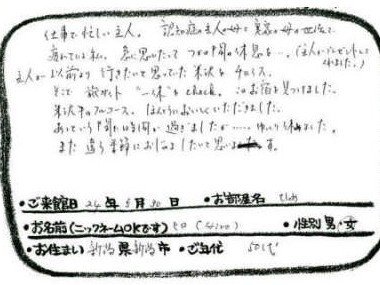 仕事で忙しい主人。認知症の主人の母と実家の母の世話で
疲れている私。急に思いたって つかの間の休息を…。(主人がプレゼントして
くれました。)
主人が以前より行きたいと思っていた米沢をチョイス。
そこで 旅サイト "一休"をcheck。このお宿を見つけました。
米沢牛のフルコース。ほんとうにおいしくいただきました。
あっという間に時間が過ぎましたが……ゆっくり休めました。
また違う季節にお伺いしたいと思います。
・ご来館日 24年5月30日 ・お部屋名
・お名前(ニックネームOKです) ・性別 男・女
・お住まい 新潟県新潟市 ・ご年代 50代